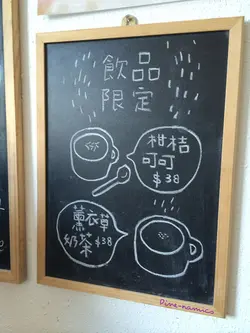 飲品
限定
柑桔
可可
$38
薰衣草
奶茶 $38
Dine-namics